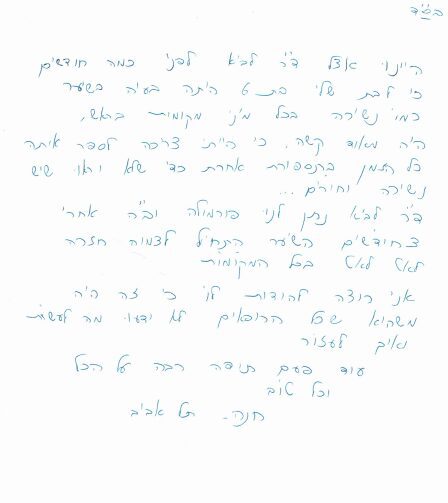 בס"ד
היינו אצל ד"ר לביא לפני כמה חודשים
כי לבת שלי בת 6 היתה בעיה בשיער
כמו נשירה בכל מיני מקומות בראש,
היה מאוד קשה, כי הייתי צריכה לספר אותה
כל הזמן בתספורת אחרת כדי שלא יראו שיש
נשירה וחורים...
ד"ר לביא נתן לנו פורמולה וב"ה אחרי
חודשים השיער התחיל לצמוח חזרה
לאט לאט בכל המקומות
אני רוצה להודות לו כי זה היה
משהו שכל הרופאים לא ידעו מה לעשות
ואיך לעזור
עוד פעם תודה רבה על הכל
וכל טוב
חנה - תל אביב